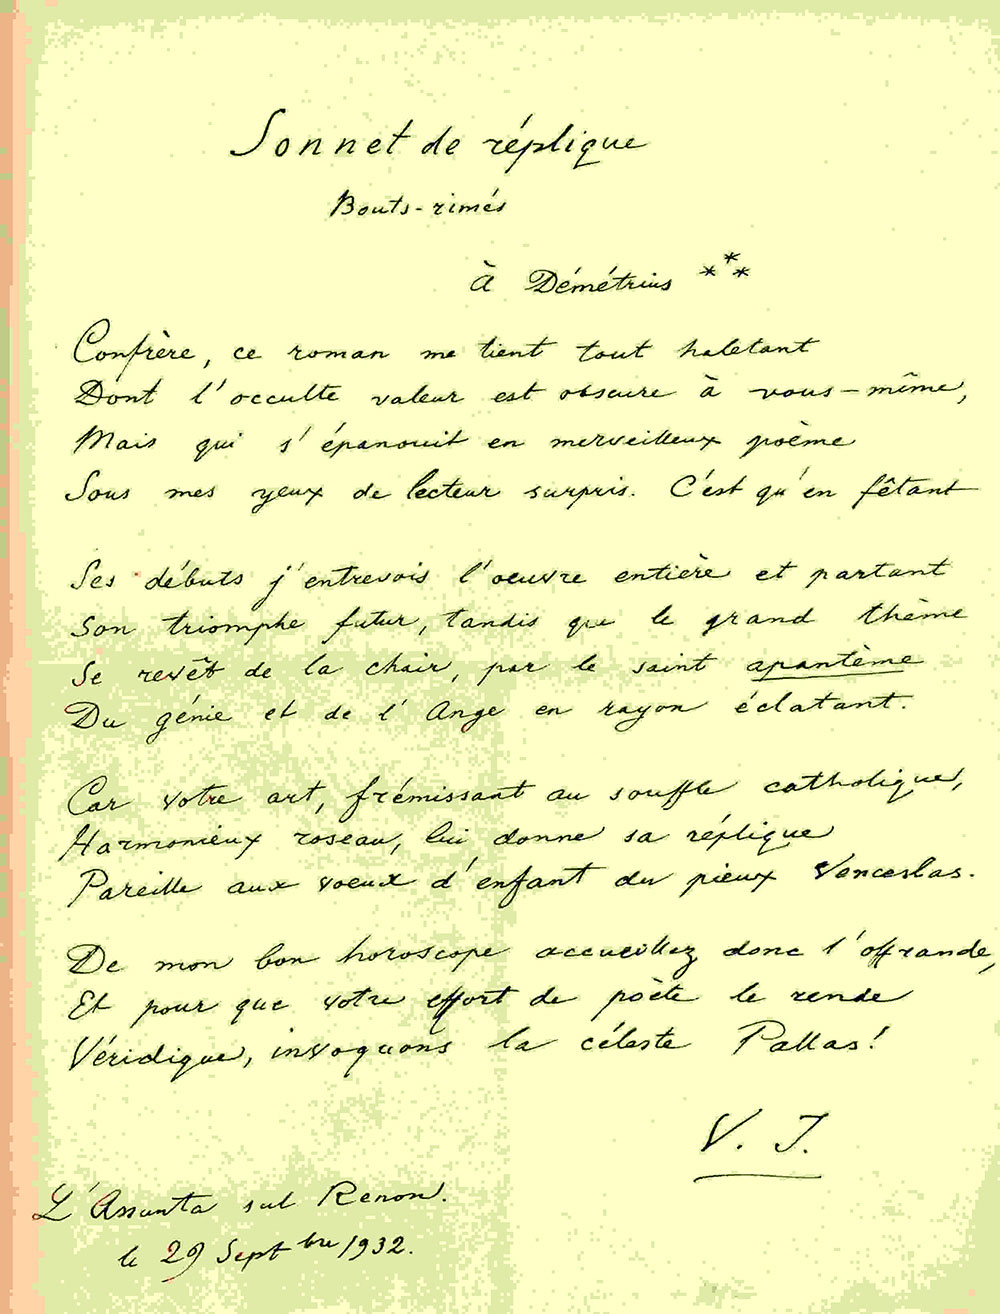 Sonnet de réplique
Bouts-rimés
À Démétrius ***
Confrère, ce roman me tient tout haletant
Dont l'occulte valeur est obscure à vous-même,
Mais qui s'épanouit en merveilleux poème
Sous mes yeux de lecteur surpris. C'est qu'en fêtant
Ses débuts j'entrevois l'oeuvre entière et partant
Son triomphe futur, tandis que le grand thème
Se revêt de la chair, par le saint apantème
Du génie et de l'Ange en rayon éclatant.
Car votre art, frémissant au souffle catholique,
Harmonieux roseau, lui donne sa réplique
Pareille aux voeux d'enfant du pieux Venceslas.
De mon bon horoscope accueillez donc l'offrande,
Et pour que votre effort de poète le rende
Véridique, invoquons la céleste Pallas!
V. J.
L'Assunta sul Renon.
le 29 Septbre 1932.